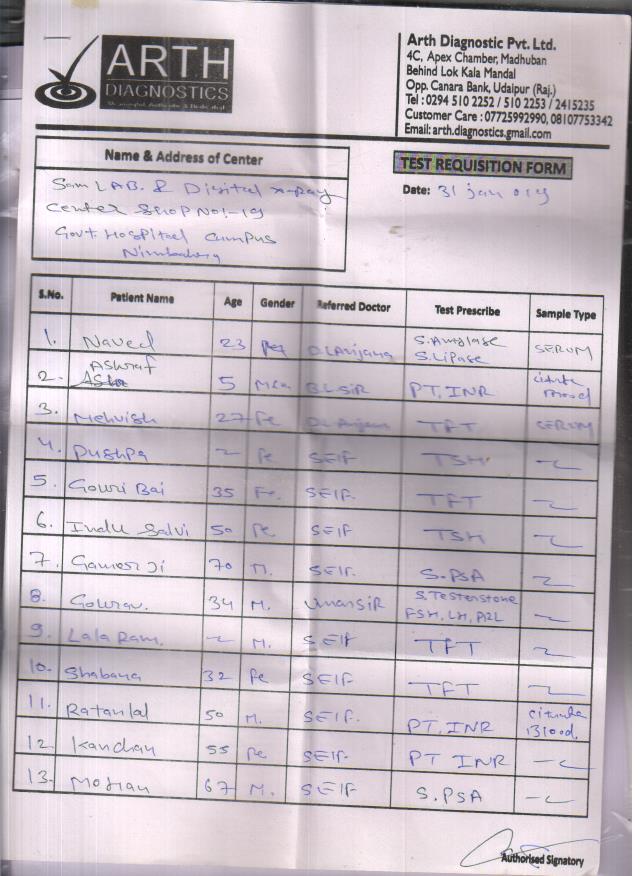 ARTH
DIAGNOSTICS
Arth Diagnostic Pvt. Ltd.
4C, Apex Chamber, Madhuban
Behind Lok Kala Mandal
Opp. Canara Bank, Udaipur (Raj.)
Tel : 0294 510 2252 / 510 2253 / 2415235
Customer Care : 07725992990, 08107753342
Email: arth.diagnostics.gmail.com
Name & Address of Center
TEST REQUISITION FORM
Sam LAB. & Digital x-ray
Date: 31 jan 019
center SHOP NO1-19
Govt. Hospital campus
S.No. Patient Name Age Gender Referred Doctor Test Prescribe Sample Type
1. Naved 23 S. Amylase SERUM
S. Lipase
2. Ashraf 5 BL SIR PT, INR citrate
3. Mehvish 27 Fe TFT SERUM
4. Pushpa Fe SELF TSH
5. Gouri Bai 35 Fe. SELF. TFT
6. Indu Salvi 50 Fe SELF TSH
7. Gamer Ji 70 M. SELF. S. PSA
8. Gourav. 34 M. S. Testerstone
FSH, LH, PRL
9. Lala Ram. M. SELF TFT
10. Shabana 32 Fe SELF TFT
11. Ratanlal 50 M. SELF. PT, INR citrate
Blood.
12. Kanchan 55 Fe SELF. PT INR
13. Mohan 67 M. SELF S. PSA
Authorised Signatory